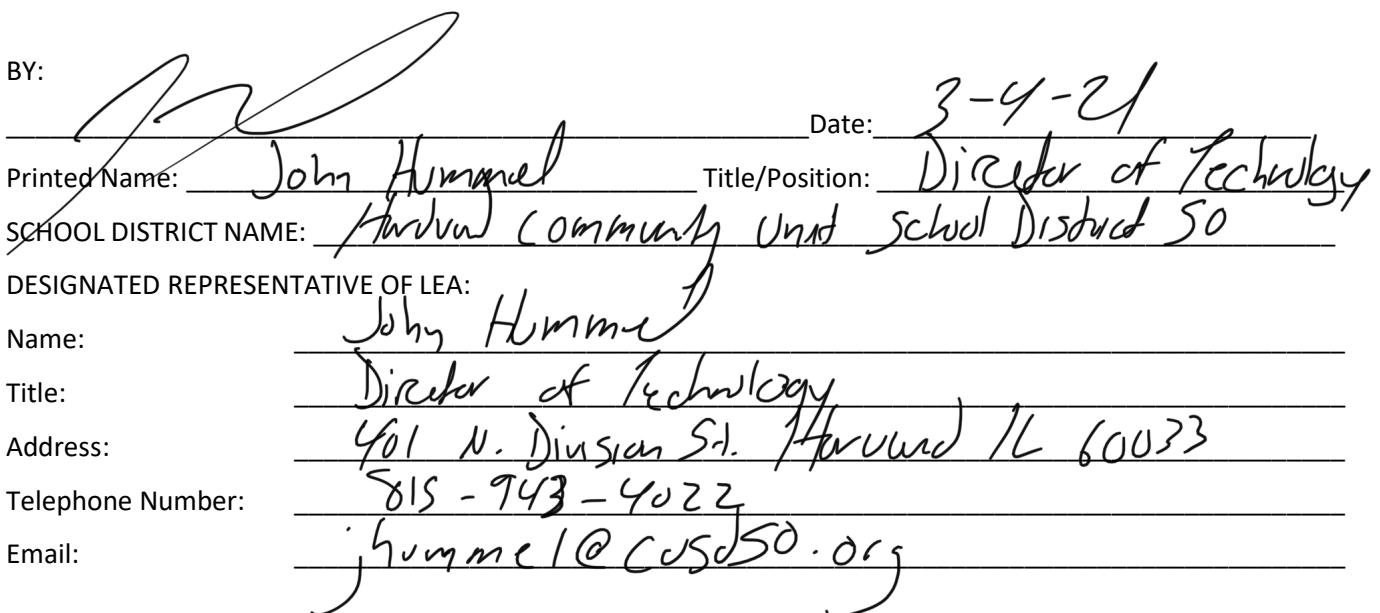 BY:
Date: 3-4-21
Printed Name: John Hummel Title/Position: Director of Technology
SCHOOL DISTRICT NAME: Harvard Community Unit School District 50
DESIGNATED REPRESENTATIVE OF LEA:
Name: John Hummel
Title: Director of Technology
Address: 401 N. Division St. Harvard IL 60033
Telephone Number: 815-943-4022
Email: jhummel@cusd50.org